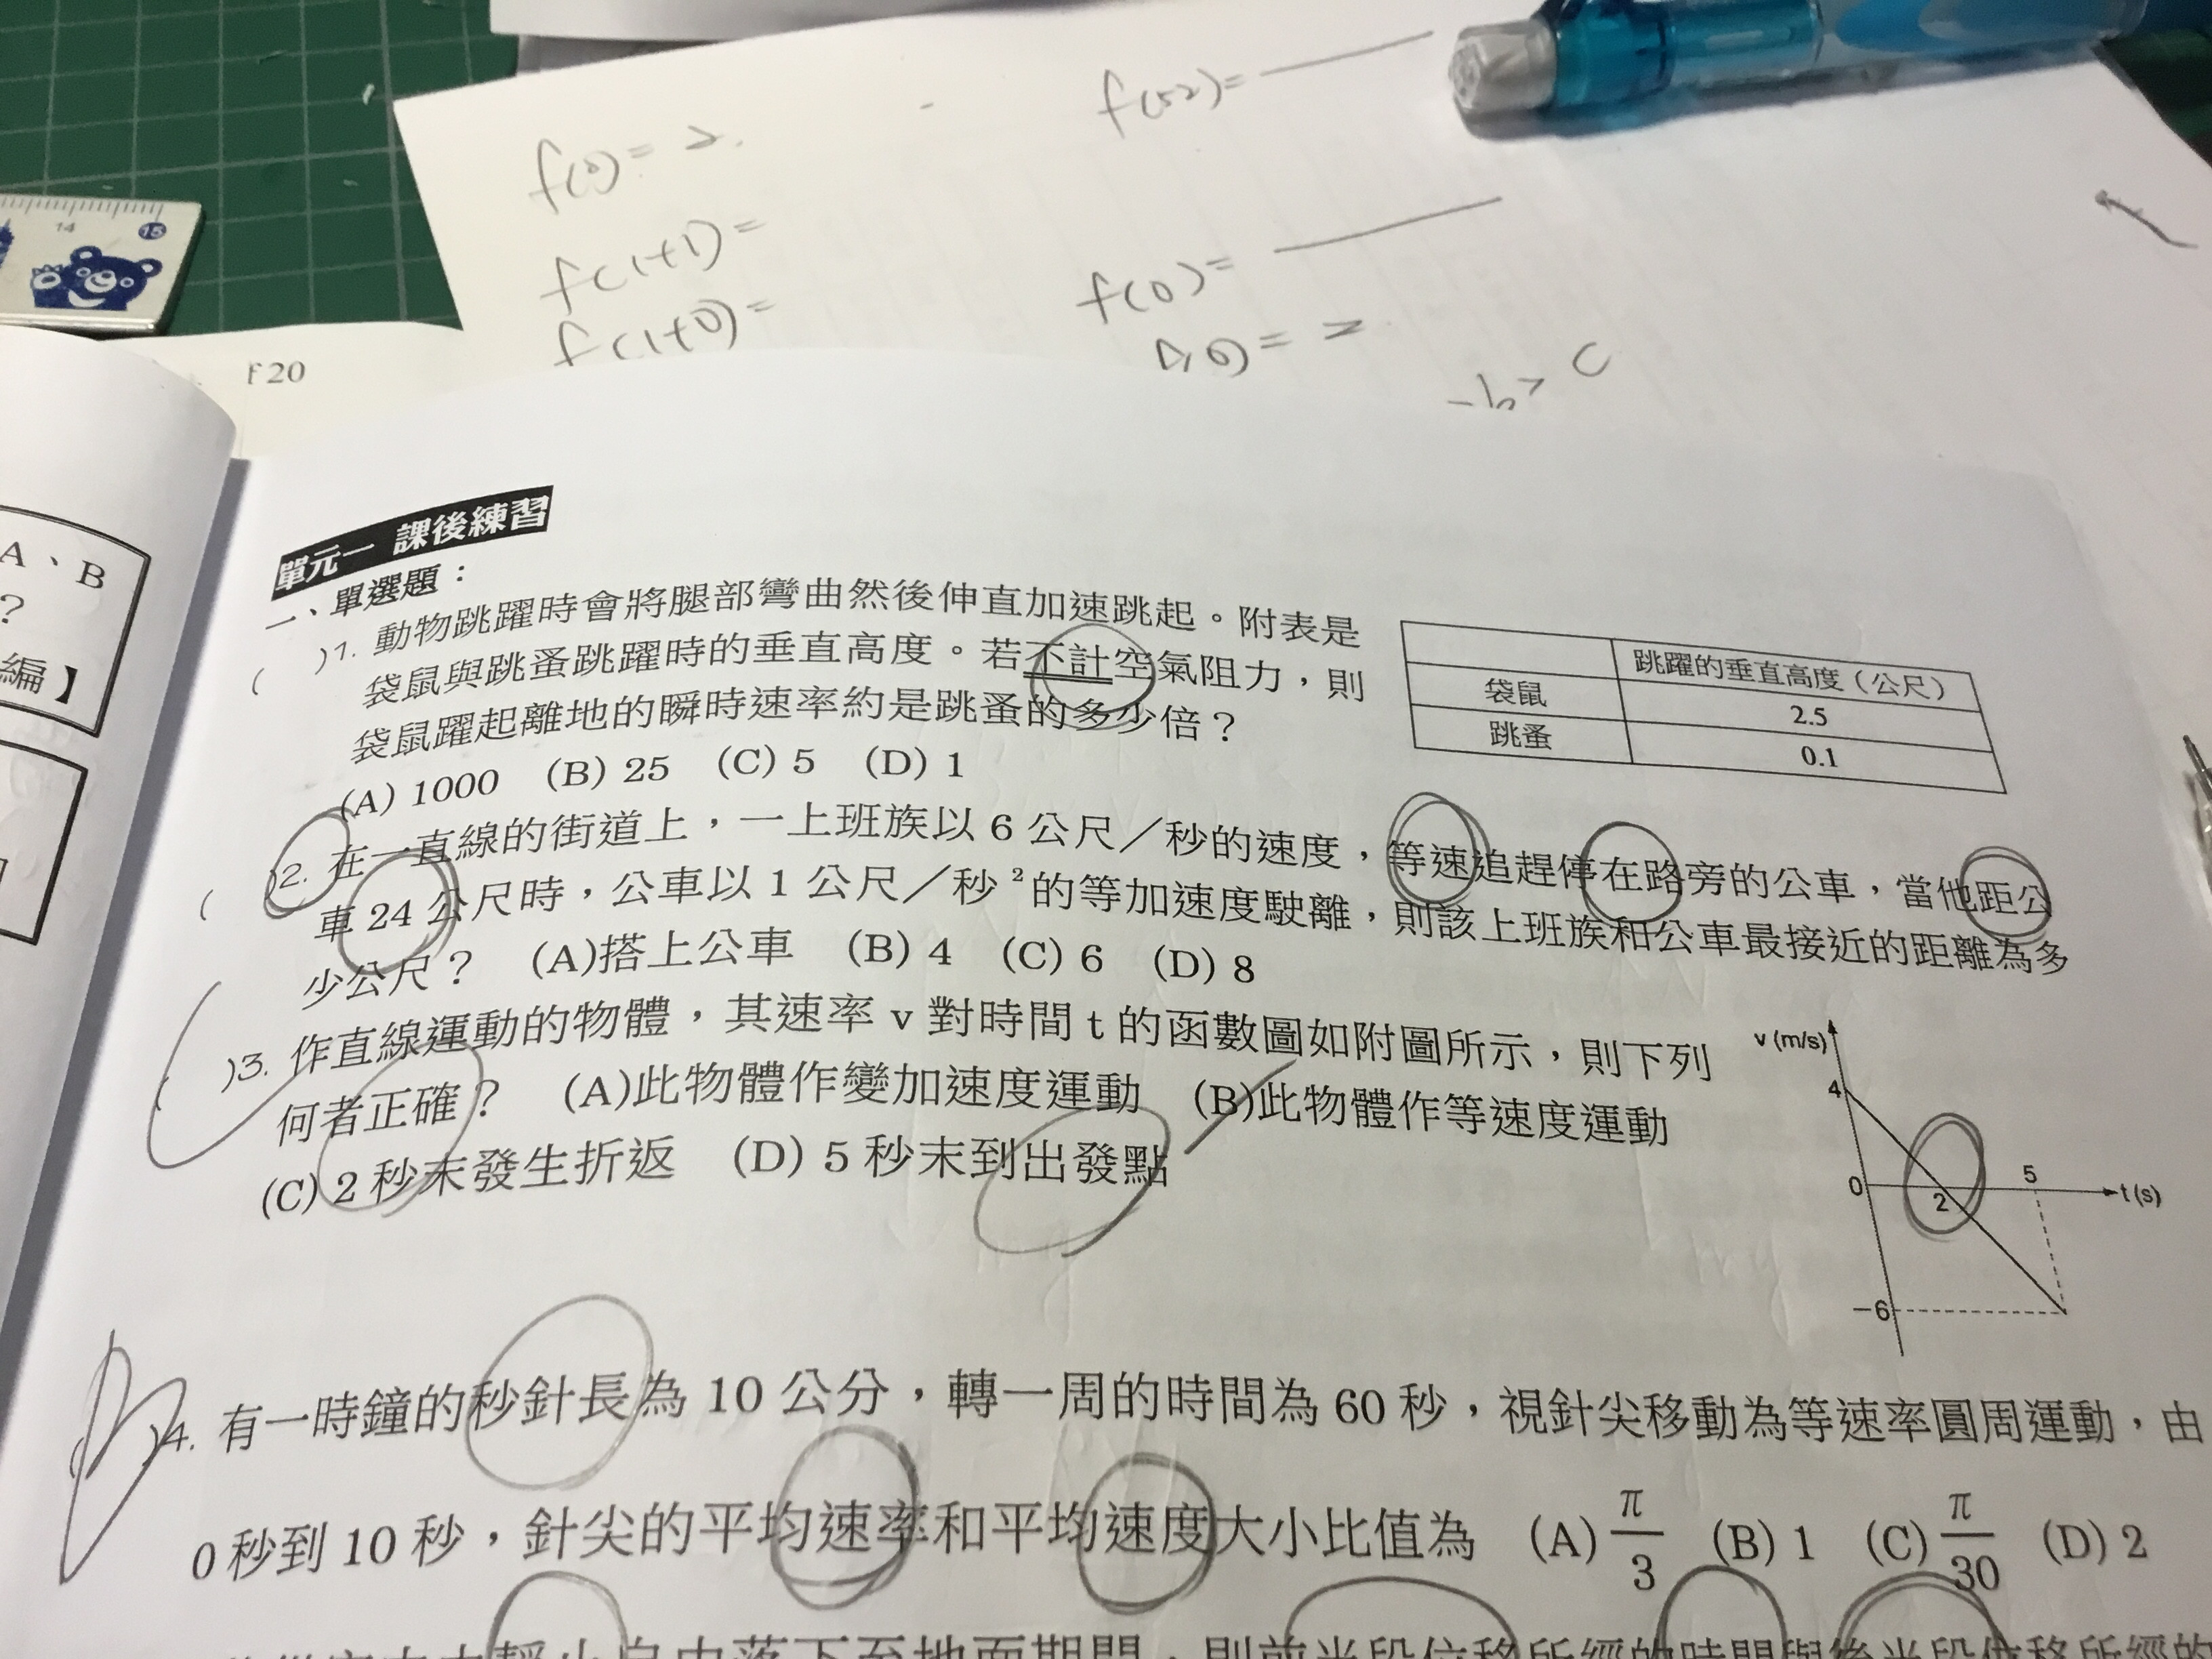 f(52)=
f(0)= 2.
f(1+1)=
f(0)=
f(1+0)=
14 15
f 20
A、B
?
編】
單元一 課後練習
一、單選題:
( )1. 動物跳躍時會將腿部彎曲然後伸直加速跳起。附表是
袋鼠與跳蚤跳躍時的垂直高度。若不計空氣阻力,則
袋鼠躍起離地的瞬時速率約是跳蚤的多少倍?
(A) 1000 (B) 25 (C) 5 (D) 1
跳躍的垂直高度(公尺)
袋鼠 2.5
跳蚤 0.1
( )2. 在一直線的街道上,一上班族以 6 公尺/秒的速度,等速追趕停在路旁的公車,當他距公
車 24 公尺時,公車以 1 公尺/秒²的等加速度駛離,則該上班族和公車最接近的距離為多
少公尺? (A)搭上公車 (B) 4 (C) 6 (D) 8
( )3. 作直線運動的物體,其速率 v 對時間 t 的函數圖如附圖所示,則下列
何者正確? (A)此物體作變加速度運動 (B)此物體作等速度運動
(C) 2 秒末發生折返 (D) 5 秒末到出發點
v (m/s)
4
0 2 5 t (s)
-6
( )4. 有一時鐘的秒針長為 10 公分,轉一周的時間為 60 秒,視針尖移動為等速率圓周運動,由
0 秒到 10 秒,針尖的平均速率和平均速度大小比值為 (A) π/3 (B) 1 (C) π/30 (D) 2
自由落下至地面期間,則前半段位移所經的時間與後半段位移所經的